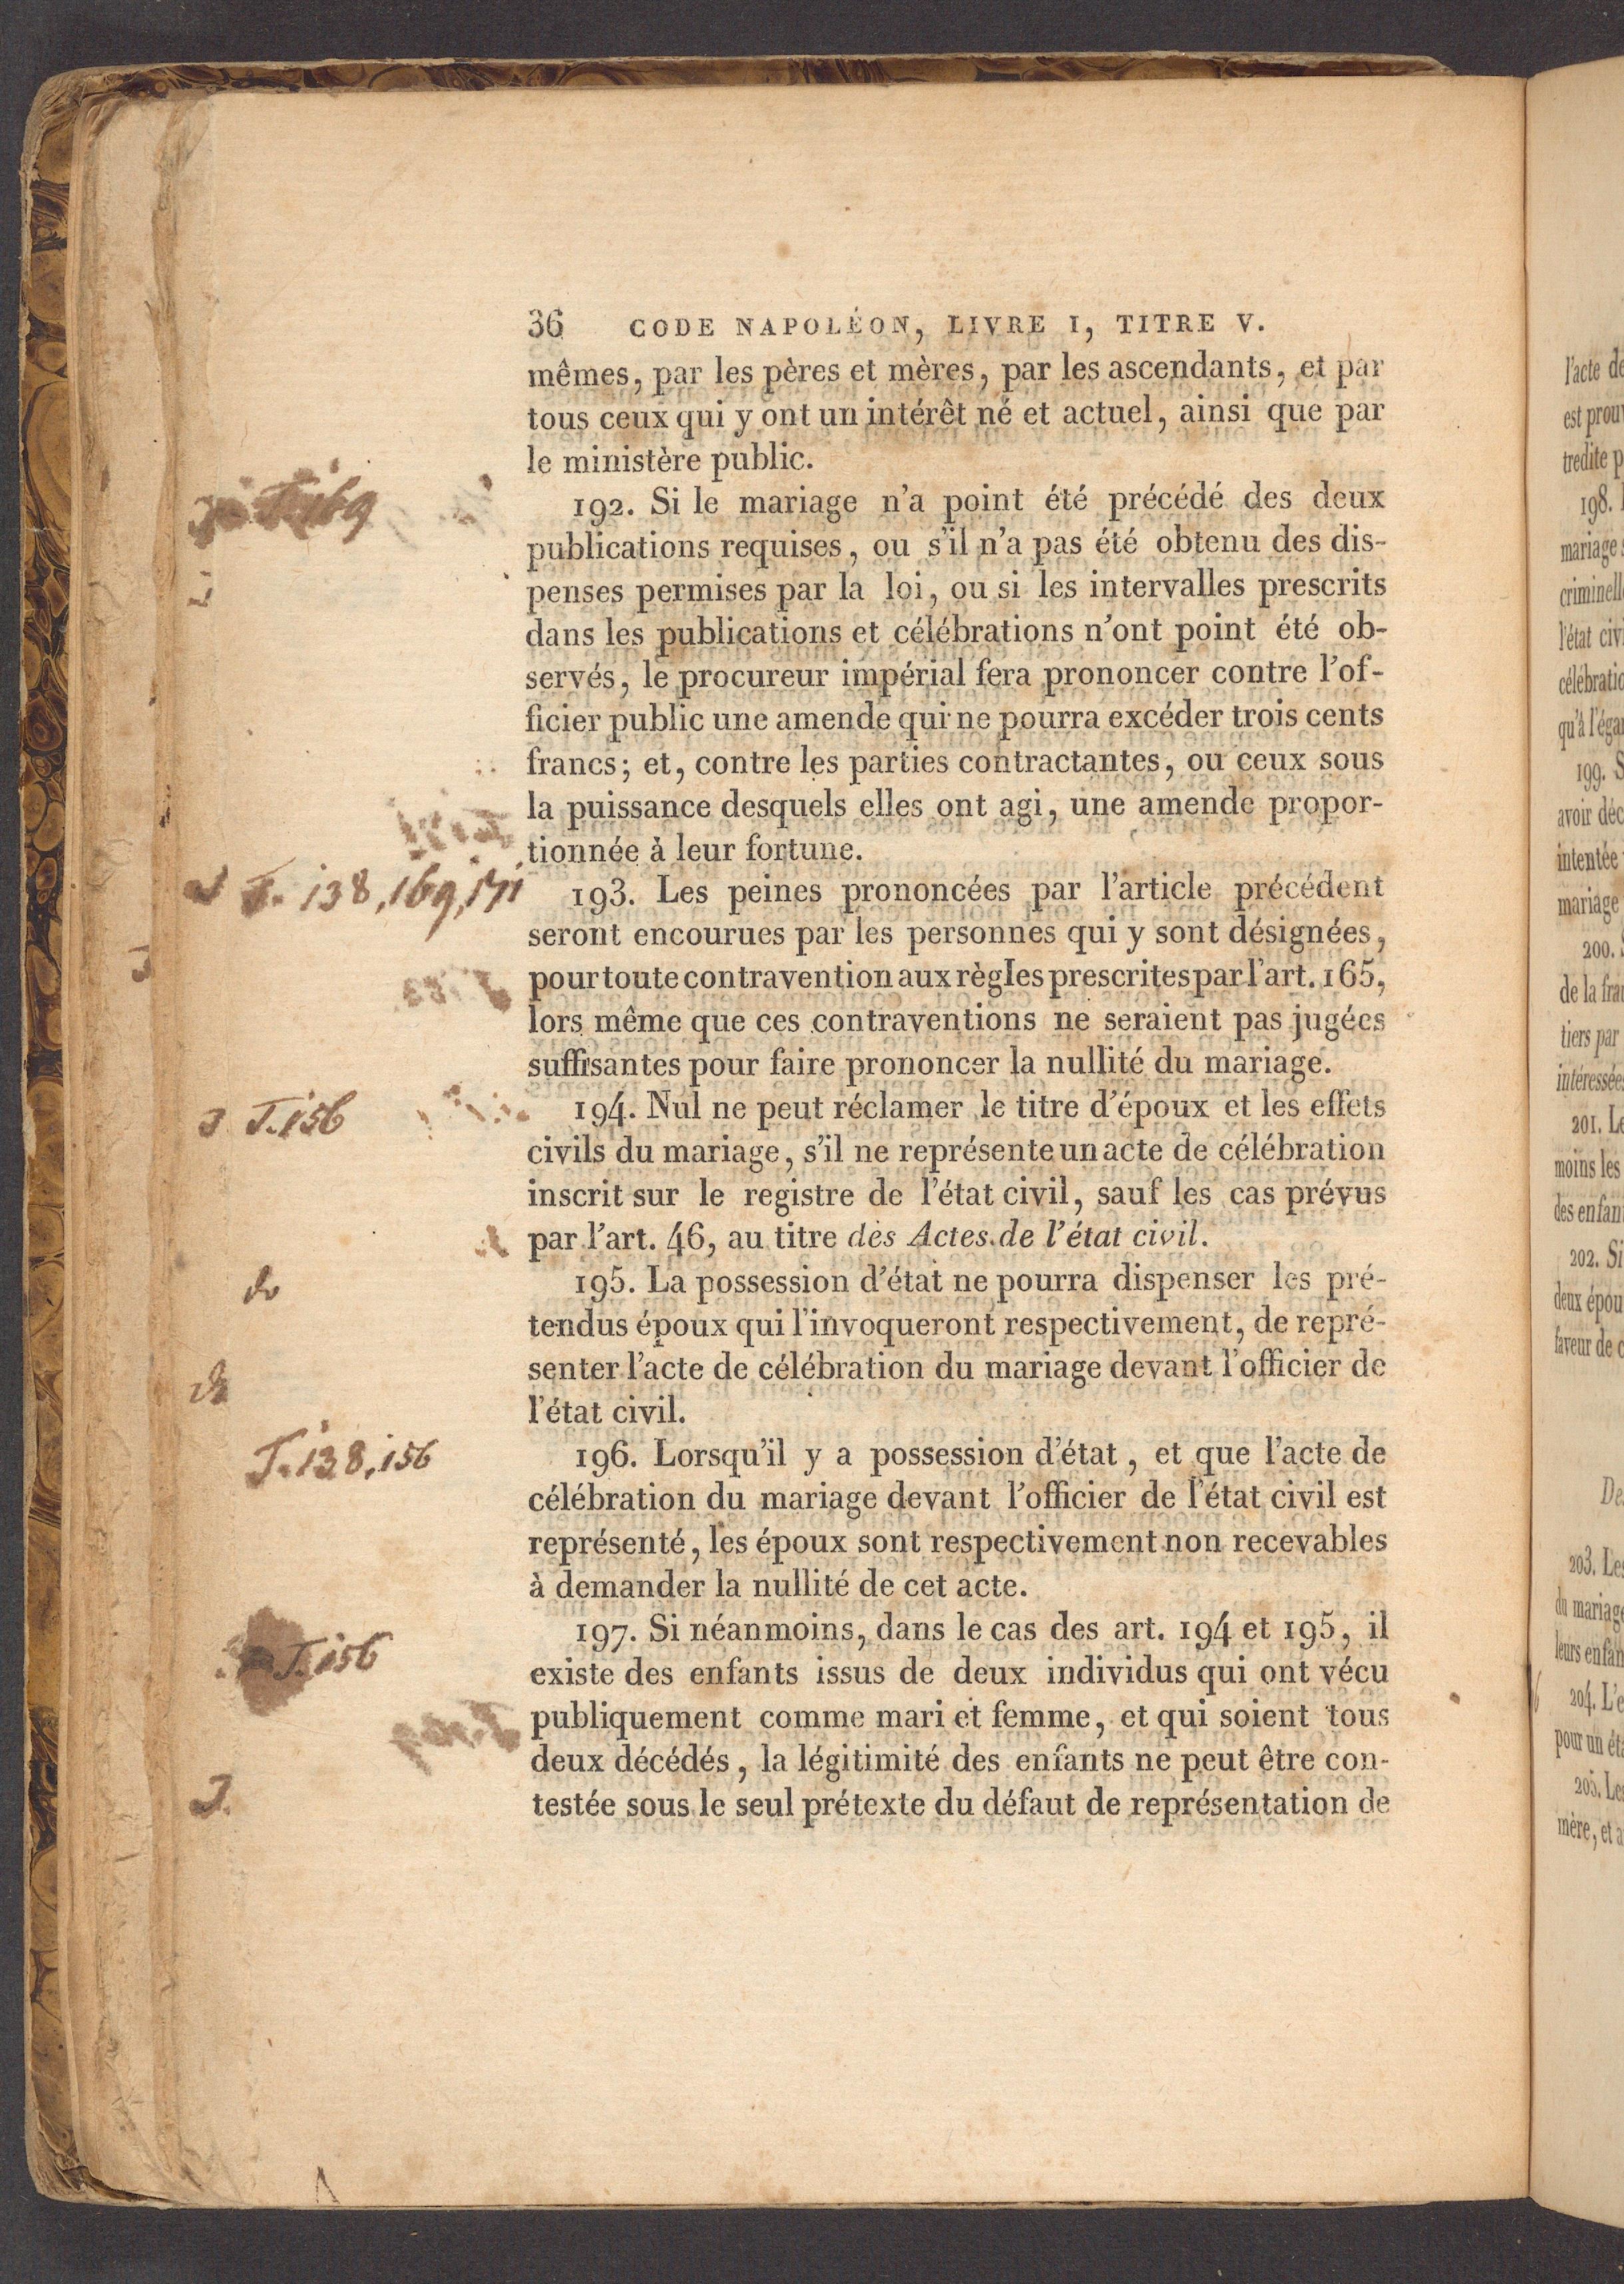 36 CODE NAPOLÉON, LIVRE I, TITRE V.
mêmes, par les pères et mères, par les ascendants, et par
tous ceux qui y ont un intérêt né et actuel, ainsi que par
le ministère public.
T. 169
192. Si le mariage n'a point été précédé des deux
publications requises, ou s'il n'a pas été obtenu des dis-
penses permises par la loi, ou si les intervalles prescrits
dans les publications et célébrations n'ont point été ob-
servés, le procureur impérial fera prononcer contre l'of-
ficier public une amende qui ne pourra excéder trois cents
francs; et, contre les parties contractantes, ou ceux sous
la puissance desquels elles ont agi, une amende propor-
tionnée à leur fortune.
T. 138, 169, 171
193. Les peines prononcées par l'article précédent
seront encourues par les personnes qui y sont désignées,
pour toute contravention aux règles prescrites par l'art. 165,
lors même que ces contraventions ne seraient pas jugées
suffisantes pour faire prononcer la nullité du mariage.
T. 156
194. Nul ne peut réclamer le titre d'époux et les effets
civils du mariage, s'il ne représente un acte de célébration
inscrit sur le registre de l'état civil, sauf les cas prévus
par l'art. 46, au titre des Actes de l'état civil.
do
195. La possession d'état ne pourra dispenser les pré-
tendus époux qui l'invoqueront respectivement, de repré-
senter l'acte de célébration du mariage devant l'officier de
l'état civil.
T. 138, 156
196. Lorsqu'il y a possession d'état, et que l'acte de
célébration du mariage devant l'officier de l'état civil est
représenté, les époux sont respectivement non recevables
à demander la nullité de cet acte.
T. 156
197. Si néanmoins, dans le cas des art. 194 et 195, il
existe des enfants issus de deux individus qui ont vécu
publiquement comme mari et femme, et qui soient tous
deux décédés, la légitimité des enfants ne peut être con-
testée sous le seul prétexte du défaut de représentation de
l'acte de
est prou
tredite p
198.
mariage
criminell
l'état civi
célébratio
qu'à l'éga
199. S
avoir déc
intentée
mariage
200.
de la frau
tiers par
intéressées
201. Le
moins les
des enfan
202. Si
deux épou
faveur de c
De
203. Les
du mariage
leurs enfan
204. L'e
pour un éta
205. Les
mère, et a